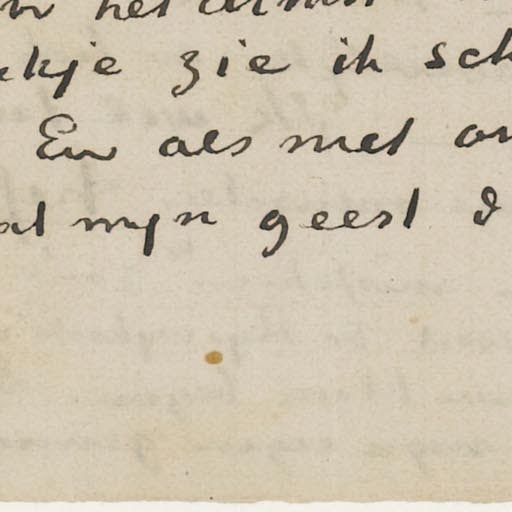 het
ekje zie ik sch
En als met on
at mijn geest d